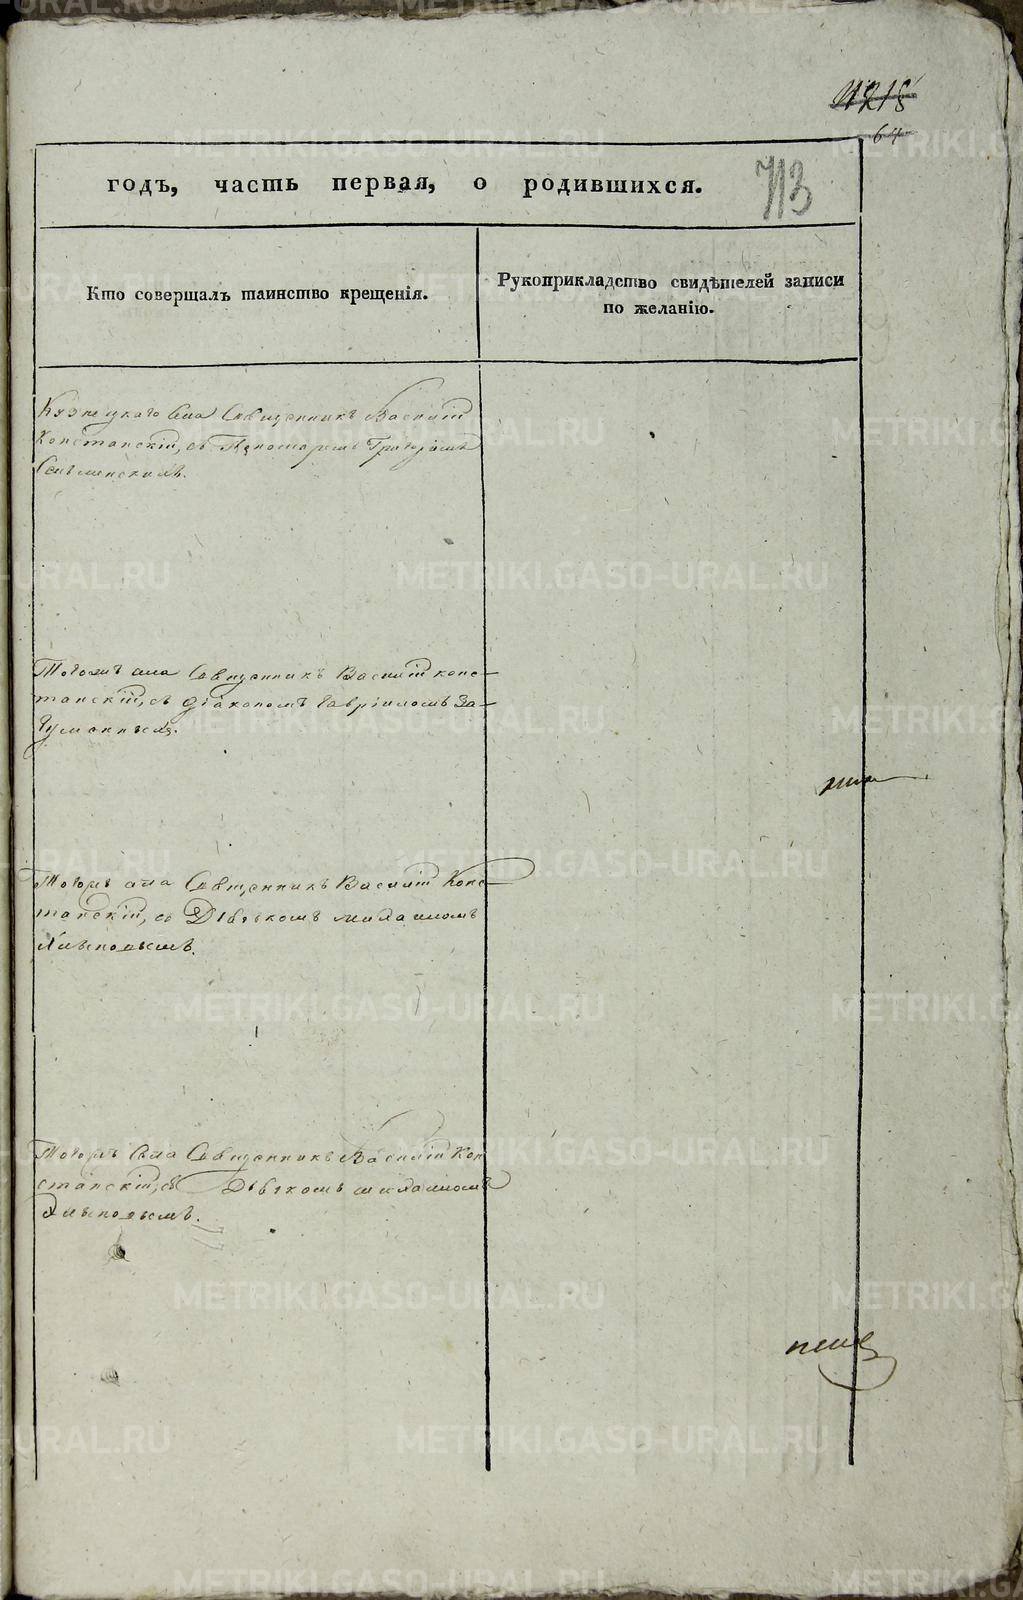 64
годъ, часть первая, о родившихся. 713
Кто совершалъ таинство крещенія.
Рукоприкладство свидѣтелей записи
по желанію.
Кузнецкаго села Священникъ Василій
Констанскій, съ Пономаремъ Григоріемъ
Тогожъ села Священникъ Василій конс-
танскій, съ діакономъ Гавріиломъ
Тогожъ села Священникъ Василій Конс-
танскій, съ Дьячкомъ михаиломъ
Тогожъ села Священникъ Василій Кон
станскій, съ Дьячкомъ михаиломъ
METRIKI.GASO-URAL.RU